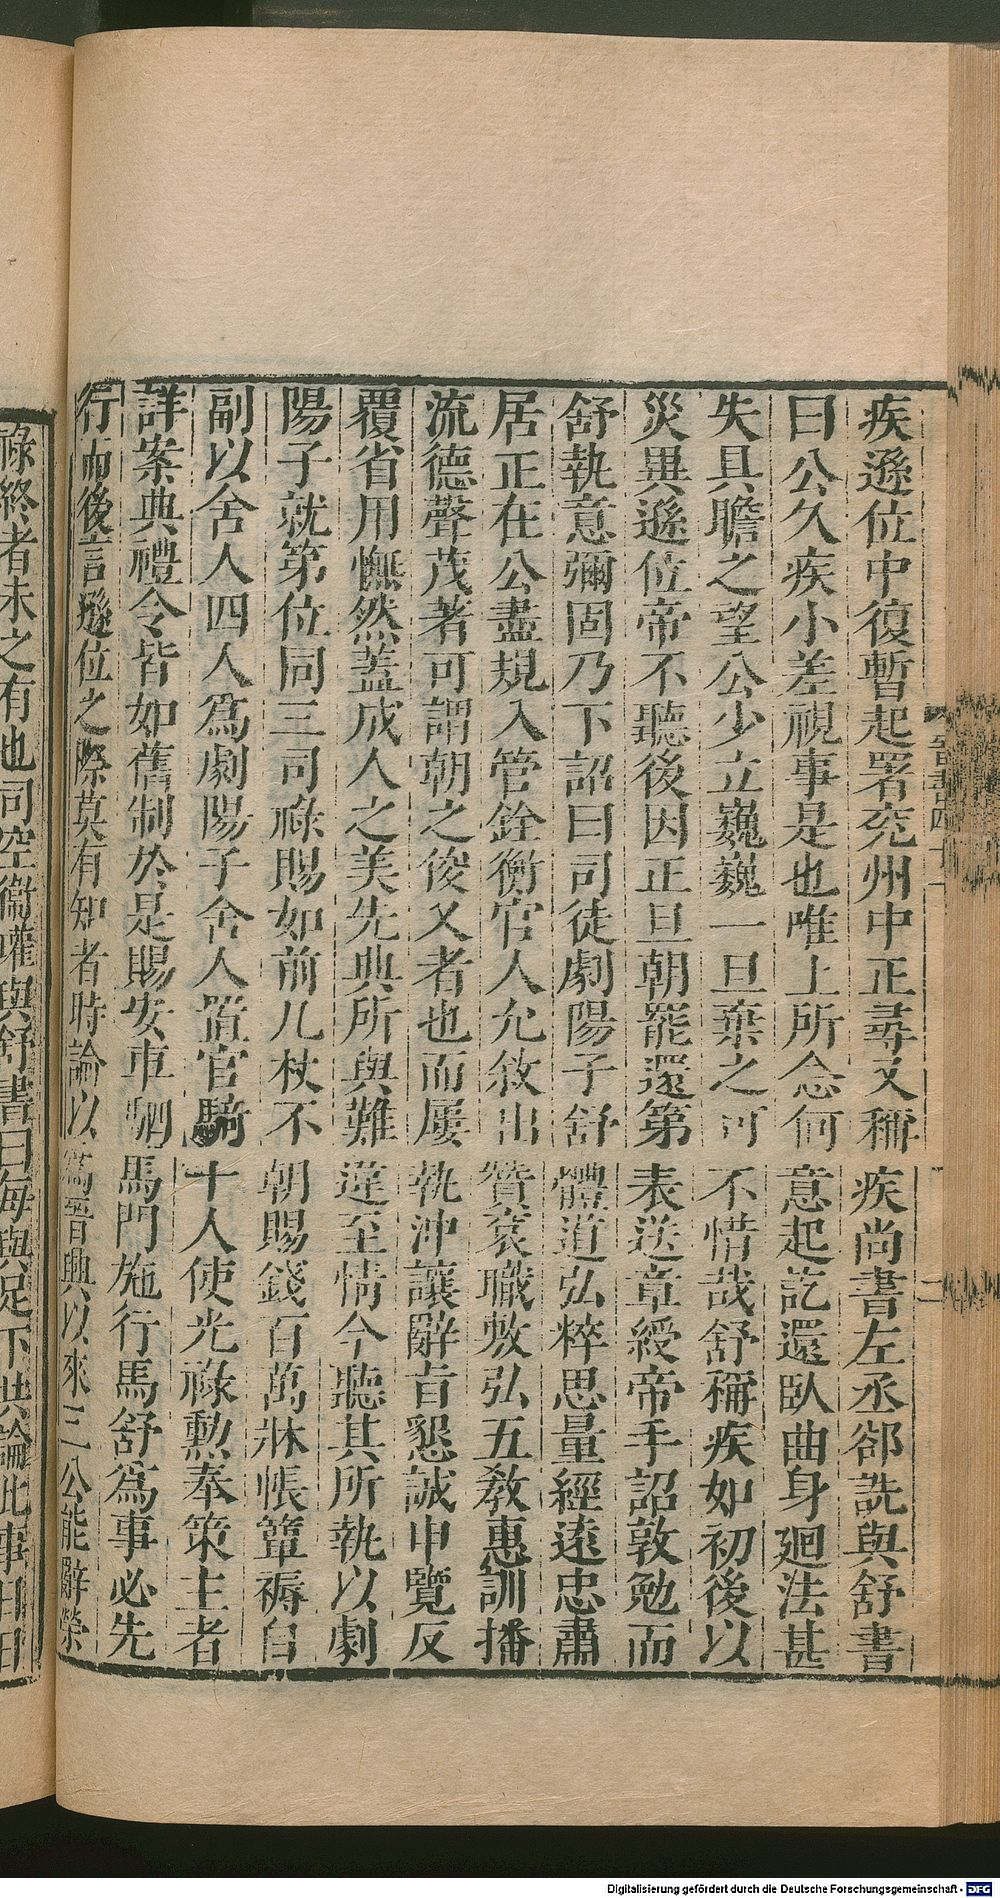 疾遜位中復暫起署兖州中正尋又稱疾尚書左丞郤詵與舒書
曰公久疾小差視事是也唯上所念何意起訖還臥曲身廻法甚
失具瞻之望公少立巍巍一旦棄之可不惜哉舒稱疾如初後以
災異遜位帝不聽後因正旦朝罷還第表送章綬帝手詔敦勉而
舒執意彌固乃下詔曰司徒劇陽子舒體道弘粹思量經遠忠肅
居正在公盡規入管銓衡官人允敘出贊衮職敷弘五教惠訓播
流德聲茂著可謂朝之俊乂者也而屢執沖讓辭旨懇誠申覽反
覆省用憮然蓋成人之美先典所與難違至情今聽其所執以劇
陽子就第位同三司祿賜如前几杖不朝賜錢百萬牀帳簟褥自
副以舍人四人為劇陽子舍人置官騎十人使光祿勲奉策主者
詳案典禮令皆如舊制於是賜安車駟馬門施行馬舒為事必先
行而後言遜位之際莫有知者時論以為晉興以來三公能辭榮
祿終者未之有也司空衞瓘與舒書曰每與足下共論此事日日
晉書四十一
Digitalisierung gefördert durch die Deutsche Forschungsgemeinschaft - DFG